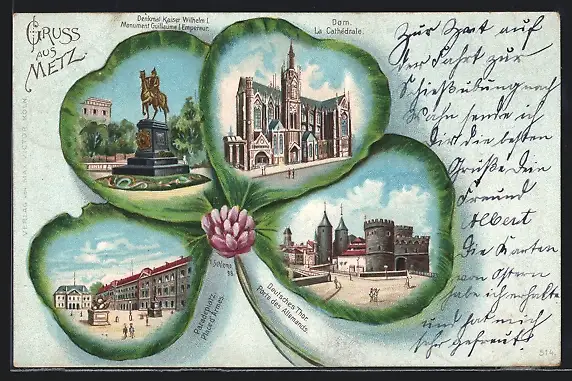 GRUSS
AUS
METZ.
Denkmal Kaiser Wilhelm I.
Monument Guillaume I. Empereur.
Dom.
La Cathédrale.
Paradeplatz.
Place d'Armes.
Deutsches Thor.
Porte des Allemands.
VERLAG VON MAX VICTOR, KÖLN.
Zur Zeit auf
der Fahrt zur
Schießübung nach
Wahn sende ich
Dir die besten
Grüße. Dein
Freund
Albert
Die Karten
von Ostern
habe ich erhalten
und hat mich
sehr gefreut!
514.